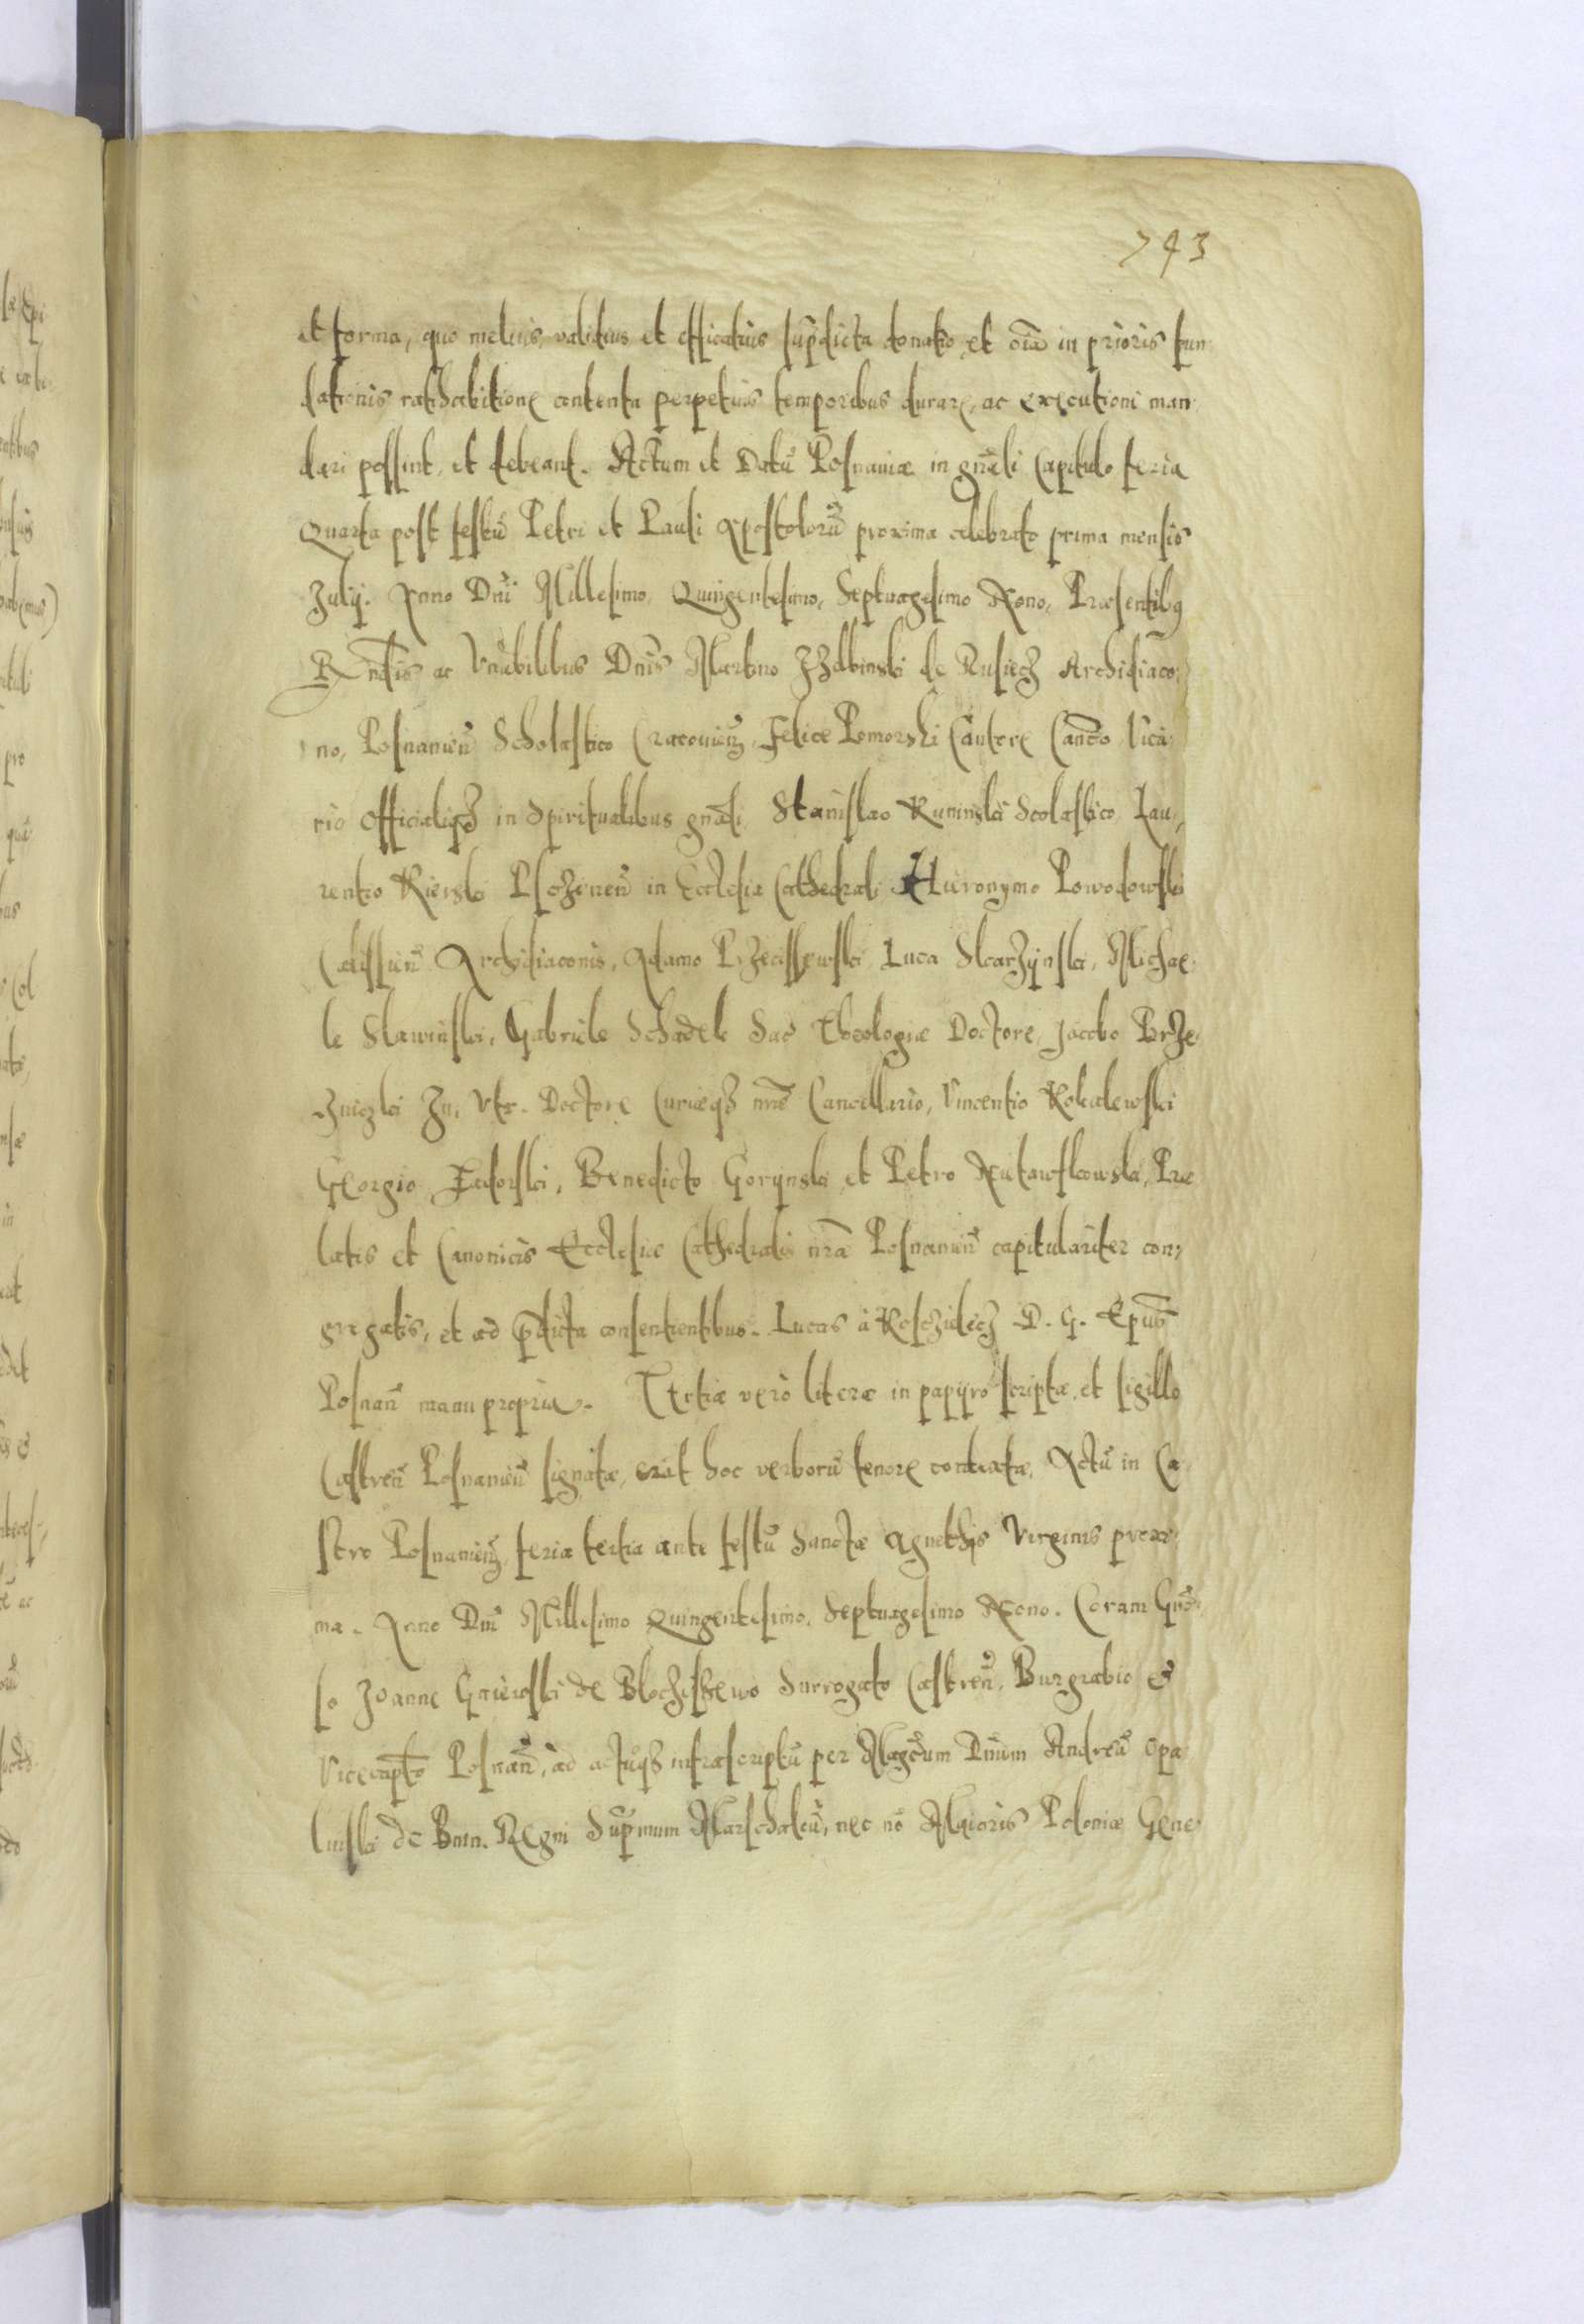 743
et forma, quo melius, validius et efficatius sup̃dicta donatio et oĩa in prioris fun
dationis rathabitione contenta perpetuis temporibus durare, ac executioni man
dari possint, et debeant. Actum et Datũ Posnaniæ in gñali Capitulo feria
quarta post festũ Petri et Pauli Apostolorũ proxima celebrato prima mensis
Julij. Anno Dnĩ Millesimo, Quingentesimo, Septuagesimo Nono, Præsentibꝰ
Rñdis ac Vnẽrabilibus Dnĩs Martino Jzdbinski de Rusiecz Archidiaco
no, Posnanieñ Scholastico Cracovieñ, Felice Pomorski Cantore Canc̃o Vica
rio Officialiq̃ in Spiritualibus gñali Stanislao Kuninski Scolastico, Lau,
rentio Kierski Psczeneñ in Ecclesia Cathedrali Hieronymo Powodowski
Calissieñ Archidiaconis, Adamo Przecissewski Luca Skarzÿnski, Michae
le Slawinski, Gabriele Schadek Sac Theologiæ Doctore, Jacobo Brze
zniczki Ju, Utr. Doctore Curiæq̃ nrẽ Cancellario, Vincentio Rokalewski
Georgio Jadorski, Benedicto Gorÿnski et Petro Mutawskowski, Præ
latis et Canonicis Ecclesiæ Cathedralis nrã Posnanieñ capitulariter con,
gregatis, et ad p̃dicta consentientibus. Lucas à Kosczielecz D. G. Epus̃
Posnañ manu propria. Tertiæ verò literæ in papÿro scriptæ, et sigillo
Castreñ Posnanieñ signatæ, erãt hoc verborũ tenore contextæ, Actũ in Ca
stro Posnanieñ, feria tertia ante festũ Sanctæ Agnethis Virginis proxi
ma. Anno Dnĩ Millesimo Quingentesimo, Septuagesimo Nono. Coram Gnõ
so Joanne Gaiewski de Bloczishewo Surrogato Castreñ, Burgrabio et
Vicecapt̃o Posnañ, ad actũq̃ infrascriptũ per Magc̃um Dnũm Andreã Opa
linski de Bnin. Regni Sup̃mum Marschalcũ, nec nõ Maioris Poloniæ Gene